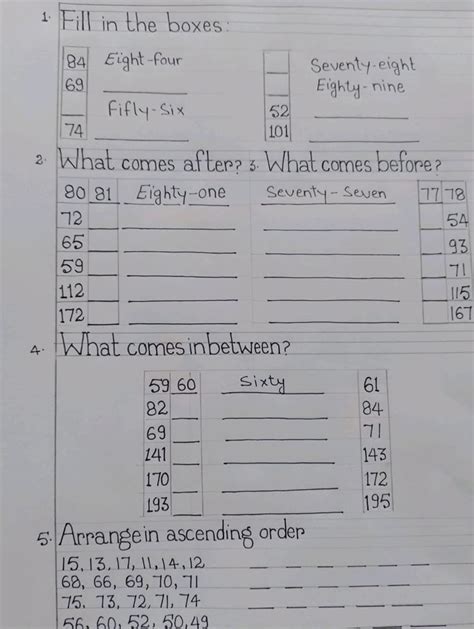 1. Fill in the boxes:
84 Eight-four Seventy-eight
69 Eighty-nine
Fifly-Six 52
74 101
2. What comes after? 3. What comes before?
80 81 Eighty-one Seventy-Seven 77 78
72 54
65 93
59 71
112 115
172 167
4. What comes inbetween?
59 60 Sixty 61
82 84
69 71
141 143
170 172
193 195
5. Arrange in ascending order
15, 13, 17, 11, 14, 12
68, 66, 69, 70, 71
75, 73, 72, 71, 74
56, 60, 52, 50, 49